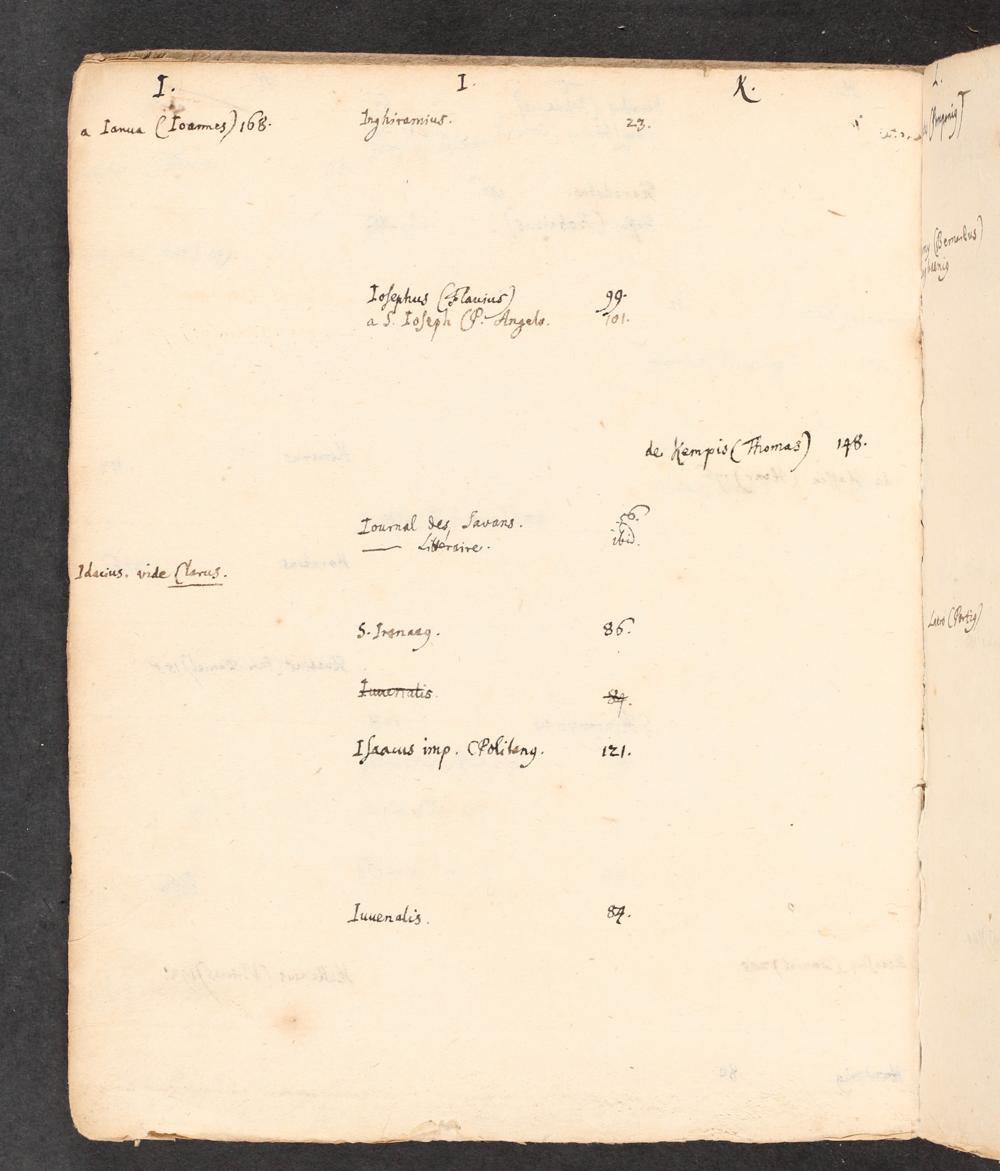 I.
a Ianua (Ioannes) 168.
Idacius. vide Clarus.
I.
Inghiramius. 23.
Iosephus (Flauius) 99.
a S. Ioseph (P. Angelo. 101.
Iournal des Savans. 56.
—— Litteraire. ibid.
S. Irenaeus. 86.
Iuuenalis. 84.
Isaacus imp. CPolitanus. 121.
Iuuenalis. 84.
K.
de Kempis (Thomas) 148.
L.
(Bernardus)